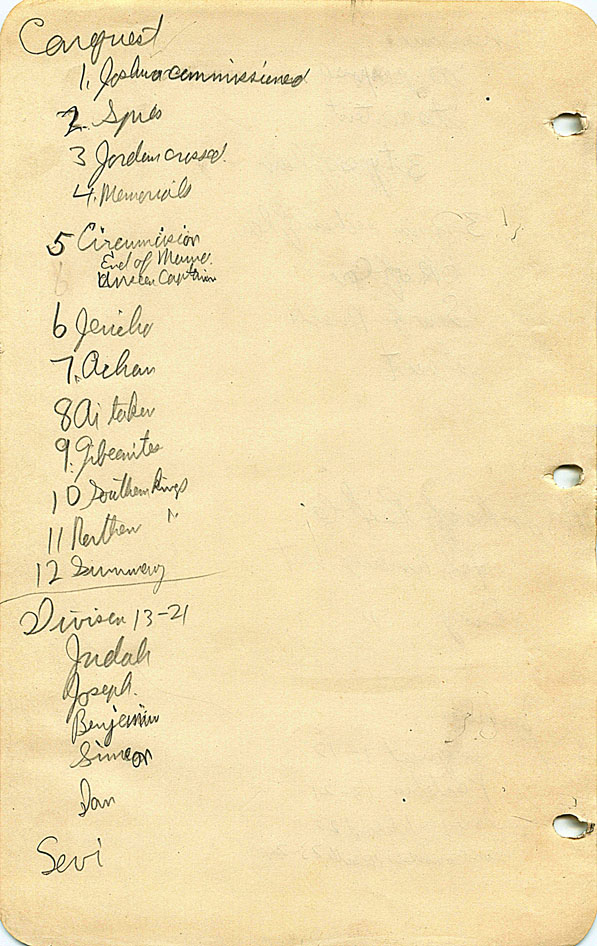 Conquest
1. Joshua commissioned
2. Spies
3 Jordan crossed.
4. Memorials
5 Circumcision
End of Manna.
Unseen Captain
6 Jericho
7. Achan
8 Ai taken
9. Gibeonites
10 Southern Kings
11 Northern "
12 Summary
Division 13-21
Judah
Joseph.
Benjamin
Simeon
Dan
Levi